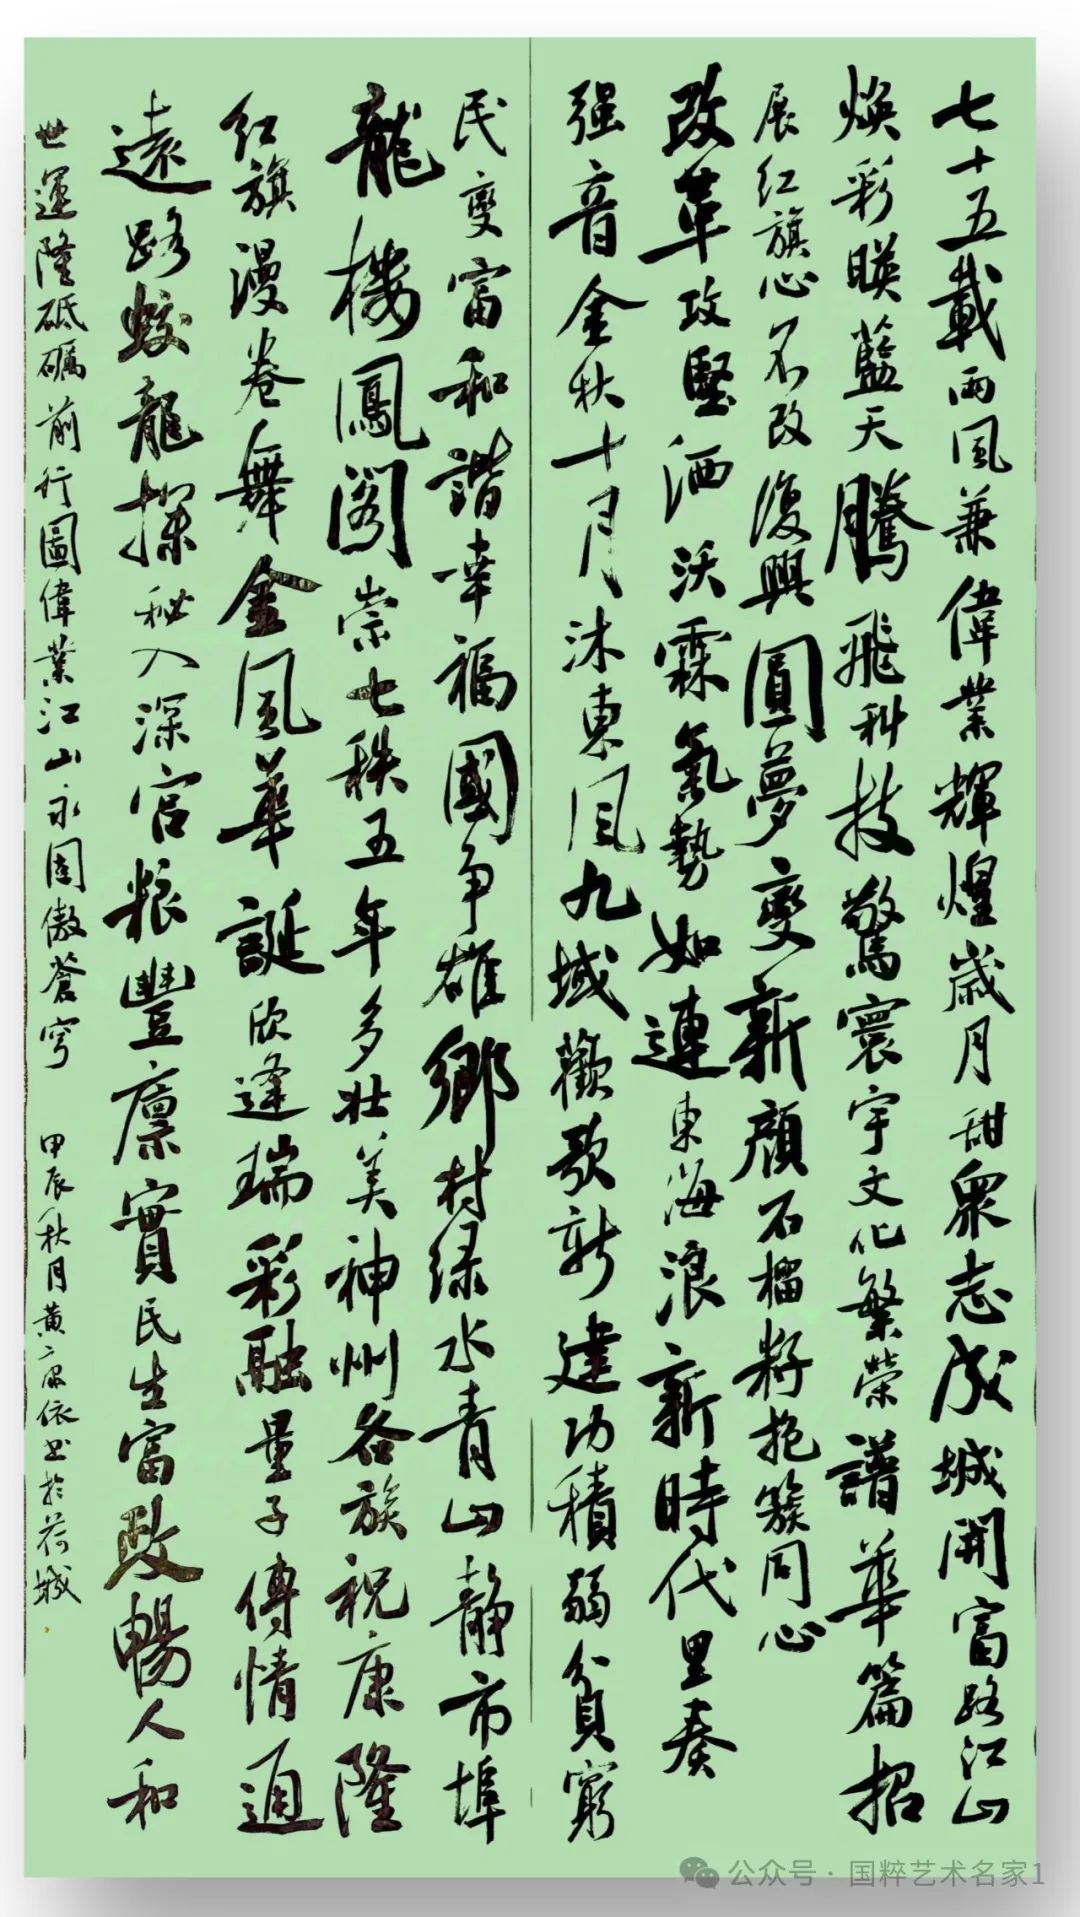 七十五載雨風兼偉業輝煌歲月甜眾志成城開富路江山
焕彩暎藍天騰飛科技驚寰宇文化繁榮譜華篇招
展红旗心不改復興圓夢變新顔石榴籽抱簇同心
改革攻堅洒沃霖氣勢如連東海浪新時代里奏
强音金秋十月沐東風九域歡歌新建功積弱貧窮
民變富和諧幸福國争雄鄉村绿水青山静市埠
龍樓鳳閣崇七秩五年多壯美神州各族祝康隆
红旗漫卷舞金風華誕欣逢瑞彩融量子傳情通
遠路蛟龍探秘入深宫粮豐廪實民生富政暢人和
世運隆砥礪前行圖偉業江山永固傲蒼穹 甲辰秋月黄肅依书於荷城
公众号·国粹艺术名家1